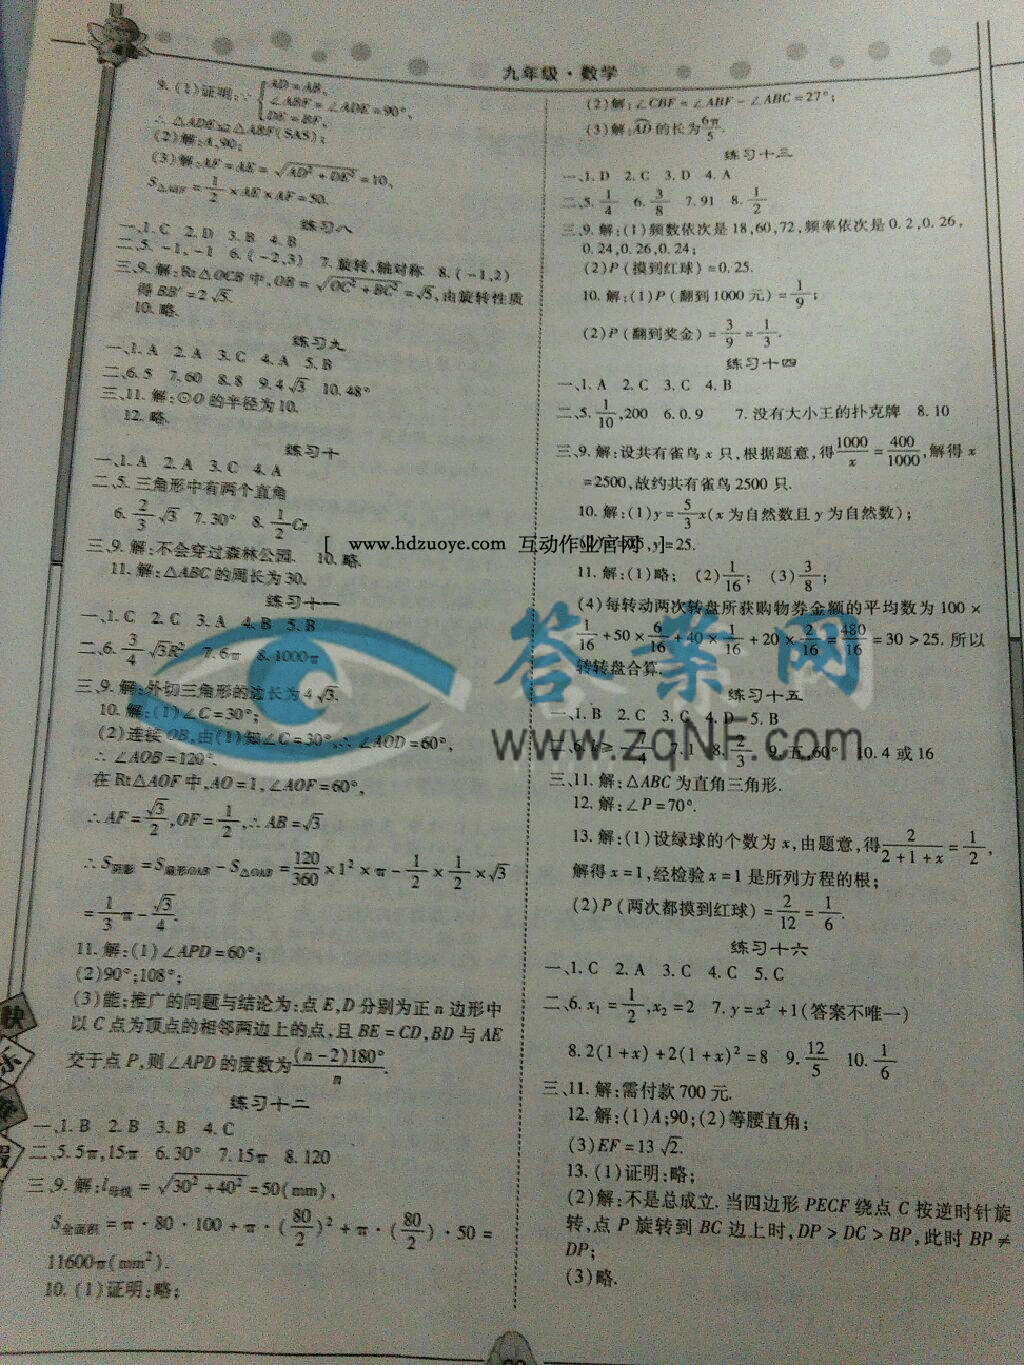 九年级·数学
9. (1)证明:∵ { AD=AB, ∠ABF=∠ADE=90°, DE=BF,
∴ △ADE≌△ABF(SAS);
(2)解:A,90;
(3)解:AF=AE=√(AD²+DE²)=10,
S△AEF=1/2×AE×AF=50.
练习八
一、1. C 2. D 3. B 4. B
二、5. -1, -1 6. (-2,3) 7. 旋转,轴对称 8. (-1,2)
三、9. 解:Rt△OCB 中,OB=√(OC²+BC²)=√5,由旋转性质
得 BB′=2√5.
10. 略.
练习九
一、1. A 2. A 3. C 4. A 5. B
二、6. 5 7. 60 8. 8 9. 4√3 10. 48°
三、11. 解:⊙O 的半径为 10.
12. 略.
练习十
一、1. A 2. A 3. C 4. A
二、5. 三角形中有两个直角
6. 2/3√3 7. 30° 8. 1/2
三、9. 解:不会穿过森林公园. 10. 略.
11. 解:△ABC 的周长为 30.
练习十一
一、1. C 2. C 3. A 4. B 5. B
二、6. 3/4√3R² 7. 6π 8. 1000π
三、9. 解:外切三角形的边长为 4√3.
10. 解:(1)∠C=30°;
(2)连接 OB,由(1)知∠C=30°,∴∠AOD=60°,
∴ ∠AOB=120°.
在 Rt△AOF 中,AO=1,∠AOF=60°,
∴AF=√3/2,OF=1/2,∴AB=√3
∴S阴影=S扇形OAB-S△OAB=120/360×1²×π-1/2×1/2×√3
=1/3π-√3/4.
11. 解:(1)∠APD=60°;
(2)90°;108°;
(3)能;推广的问题与结论为:点 E,D 分别为正 n 边形中
以 C 点为顶点的相邻两边上的点,且 BE=CD,BD 与 AE
交于点 P,则∠APD 的度数为(n-2)180°/n.
练习十二
一、1. B 2. B 3. B 4. C
二、5. 5π,15π 6. 30° 7. 15π 8. 120
三、9. 解:l母线=√(30²+40²)=50(mm),
S全面积=π·80·100+π·(80/2)²+π·(80/2)·50=
11600π(mm²).
10. (1)证明:略;
(2)解:∠CBF=∠ABF-∠ABC=27°;
(3)解:AD的长为6π/5.
练习十三
一、1. D 2. C 3. D 4. A
二、5. 1/4 6. 3/8 7. 91 8. 1/2
三、9. 解:(1)频数依次是 18,60,72,频率依次是 0.2,0.26,
0.24,0.26,0.24;
(2)P(摸到红球)=0.25.
10. 解:(1)P(翻到1000元)=1/9;
(2)P(翻到奖金)=3/9=1/3.
练习十四
一、1. A 2. C 3. C 4. B
二、5. 1/10,200 6. 0.9 7. 没有大小王的扑克牌 8. 10
三、9. 解:设共有雀鸟 x 只,根据题意,得1000/x=400/1000,解得 x
=2500,故约共有雀鸟 2500 只.
10. 解:(1)y=5/3x(x 为自然数且 y 为自然数);
y=25.
[ www.hdzuoye.com 互动作业官网 ]
11. 解:(1)略; (2)1/16; (3)3/8;
(4)每转动两次转盘所获购物券金额的平均数为 100×
1/16+50×6/16+40×1/16+20×2/16=480/16=30>25. 所以
转转盘合算.
练习十五
一、1. B 2. C 3. C 4. D 5. B
二、6. k≥ 7. 1 8. 2/3 9. 五,60° 10. 4 或 16
三、11. 解:△ABC 为直角三角形.
12. 解:∠P=70°.
13. 解:(1)设绿球的个数为 x,由题意,得2/(2+1+x)=1/2,
解得 x=1,经检验 x=1 是所列方程的根;
(2)P(两次都摸到红球)=2/12=1/6.
练习十六
一、1. C 2. A 3. C 4. C 5. C
二、6. x₁=1/2,x₂=2 7. y=x²+1(答案不唯一)
8. 2(1+x)+2(1+x)²=8 9. 12/5 10. 1/6
三、11. 解:需付款 700 元.
12. 解:(1)A;90;(2)等腰直角;
(3)EF=13√2.
13. (1)证明:略;
(2)解:不是总成立. 当四边形 PECF 绕点 C 按逆时针旋
转,点 P 旋转到 BC 边上时,DP>DC>BP,此时 BP≠
DP;
(3)略.
答案网
www.zqNF.com